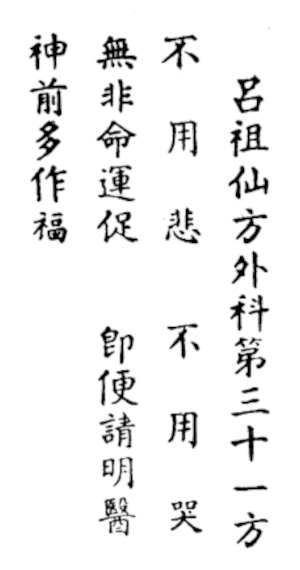 呂祖仙方外科第三十一方
不用悲 不用哭
無非命運促 卽便請明醫
神前多作福